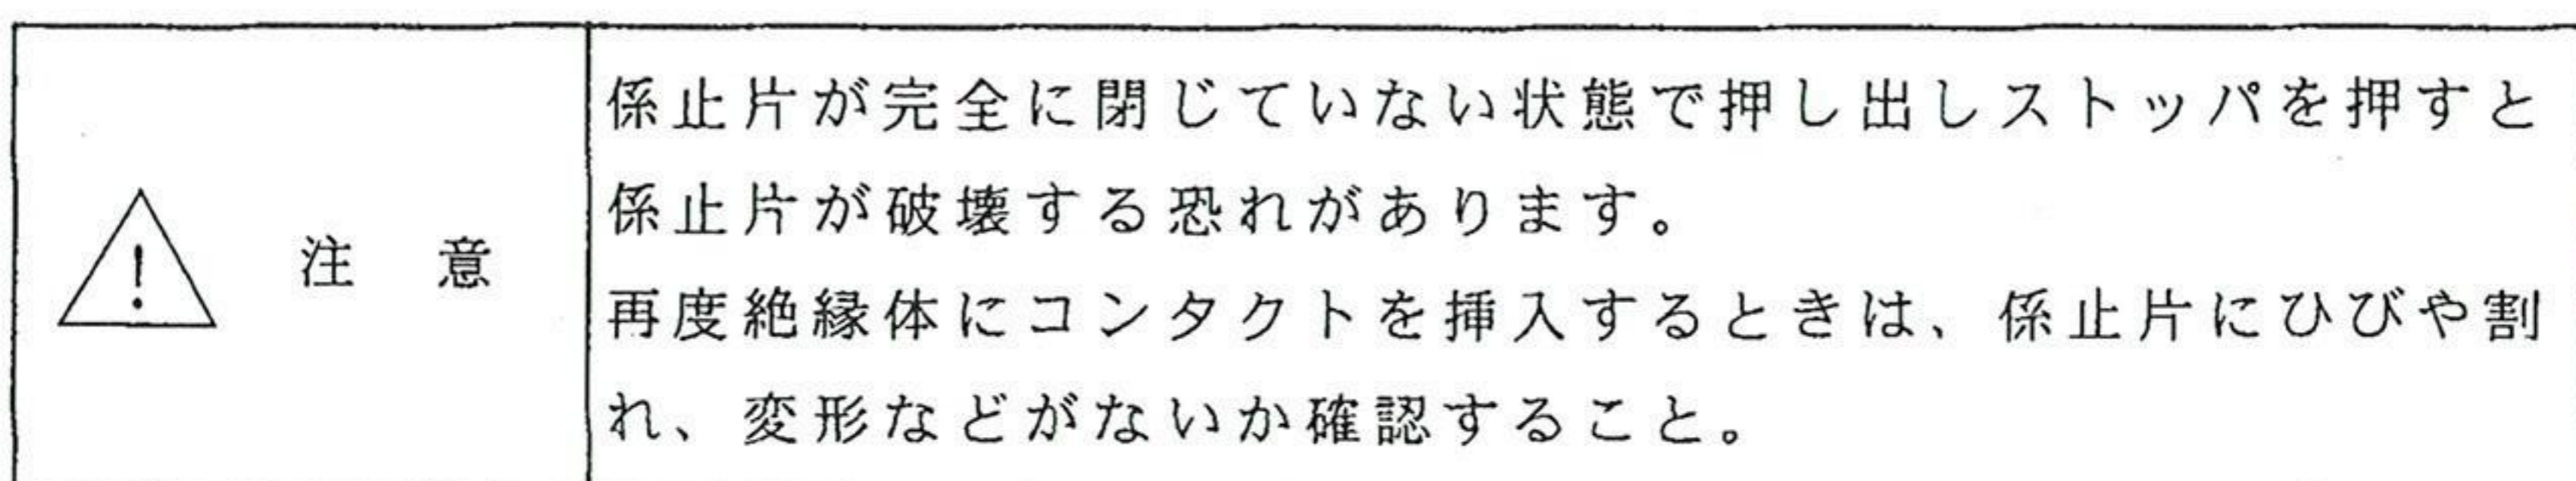 注 意
係止片が完全に閉じていない状態で押し出しストッパを押すと
係止片が破壊する恐れがあります。
再度絶縁体にコンタクトを挿入するときは、係止片にひびや割
れ、変形などがないか確認すること。